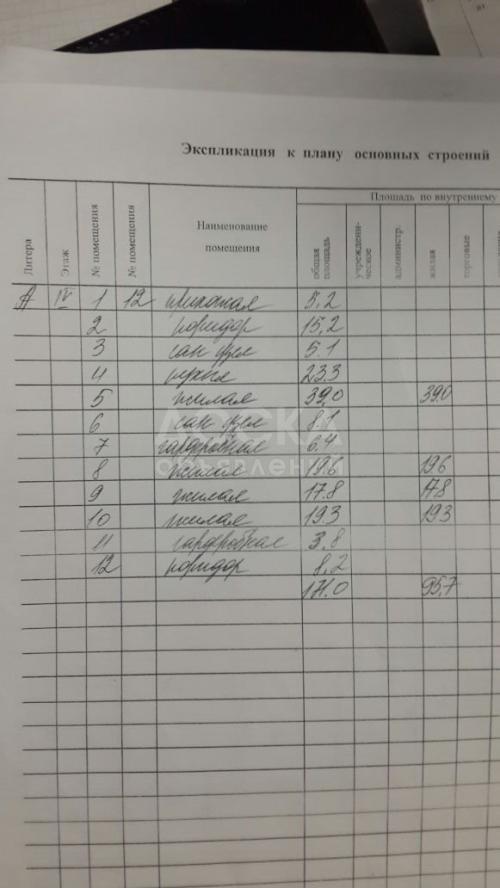 Экспликация к плану основных строений
Площадь по внутреннему
Литера Этаж № помещения № помещения Наименование помещения общая площадь учреждени-ческое администр. жилая торговые
А IV 1 12 прихожая 5,2
2 коридор 15,2
3 сан узел 5.1
4 кухня 23.3
5 жилая 39,0 39,0
6 сан узел 8.1
7 гардеробная 6.4
8 жилая 19.6 19.6
9 жилая 17.8 17.8
10 жилая 19.3 19.3
11 гардеробная 3.8
12 коридор 8,2
171.0 95,7
ДОСКА
объявлений